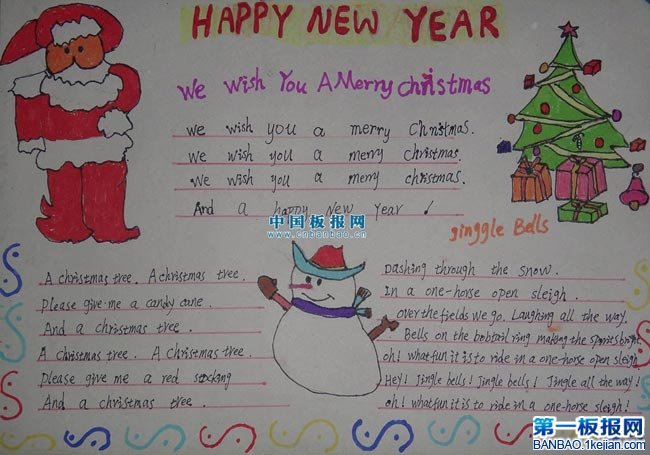 HAPPY NEW YEAR
We Wish You A Merry Christmas
We wish you a merry Christmas.
We wish you a merry Christmas.
We wish you a merry Christmas.
And a happy New Year !
中国板报网
www.cnbanbao.cn
ginggle Bells
A christmas tree. A christmas tree.
Please give me a candy cane.
And a christmas tree.
A christmas tree. A christmas tree.
Please give me a red stocking
And a christmas tree.
Dashing through the snow.
In a one-horse open sleigh.
over the fields we go. Laughing all the way.
Bells on the bobtail ring making the spirits bright
oh! what fun it is to ride in a one-horse open sleigh
Hey! Jingle bells! Jingle bells! Jingle all the way!
oh! what fun it is to ride in a one-horse sleigh!
第一板报网
BANBAO.1kejian.com